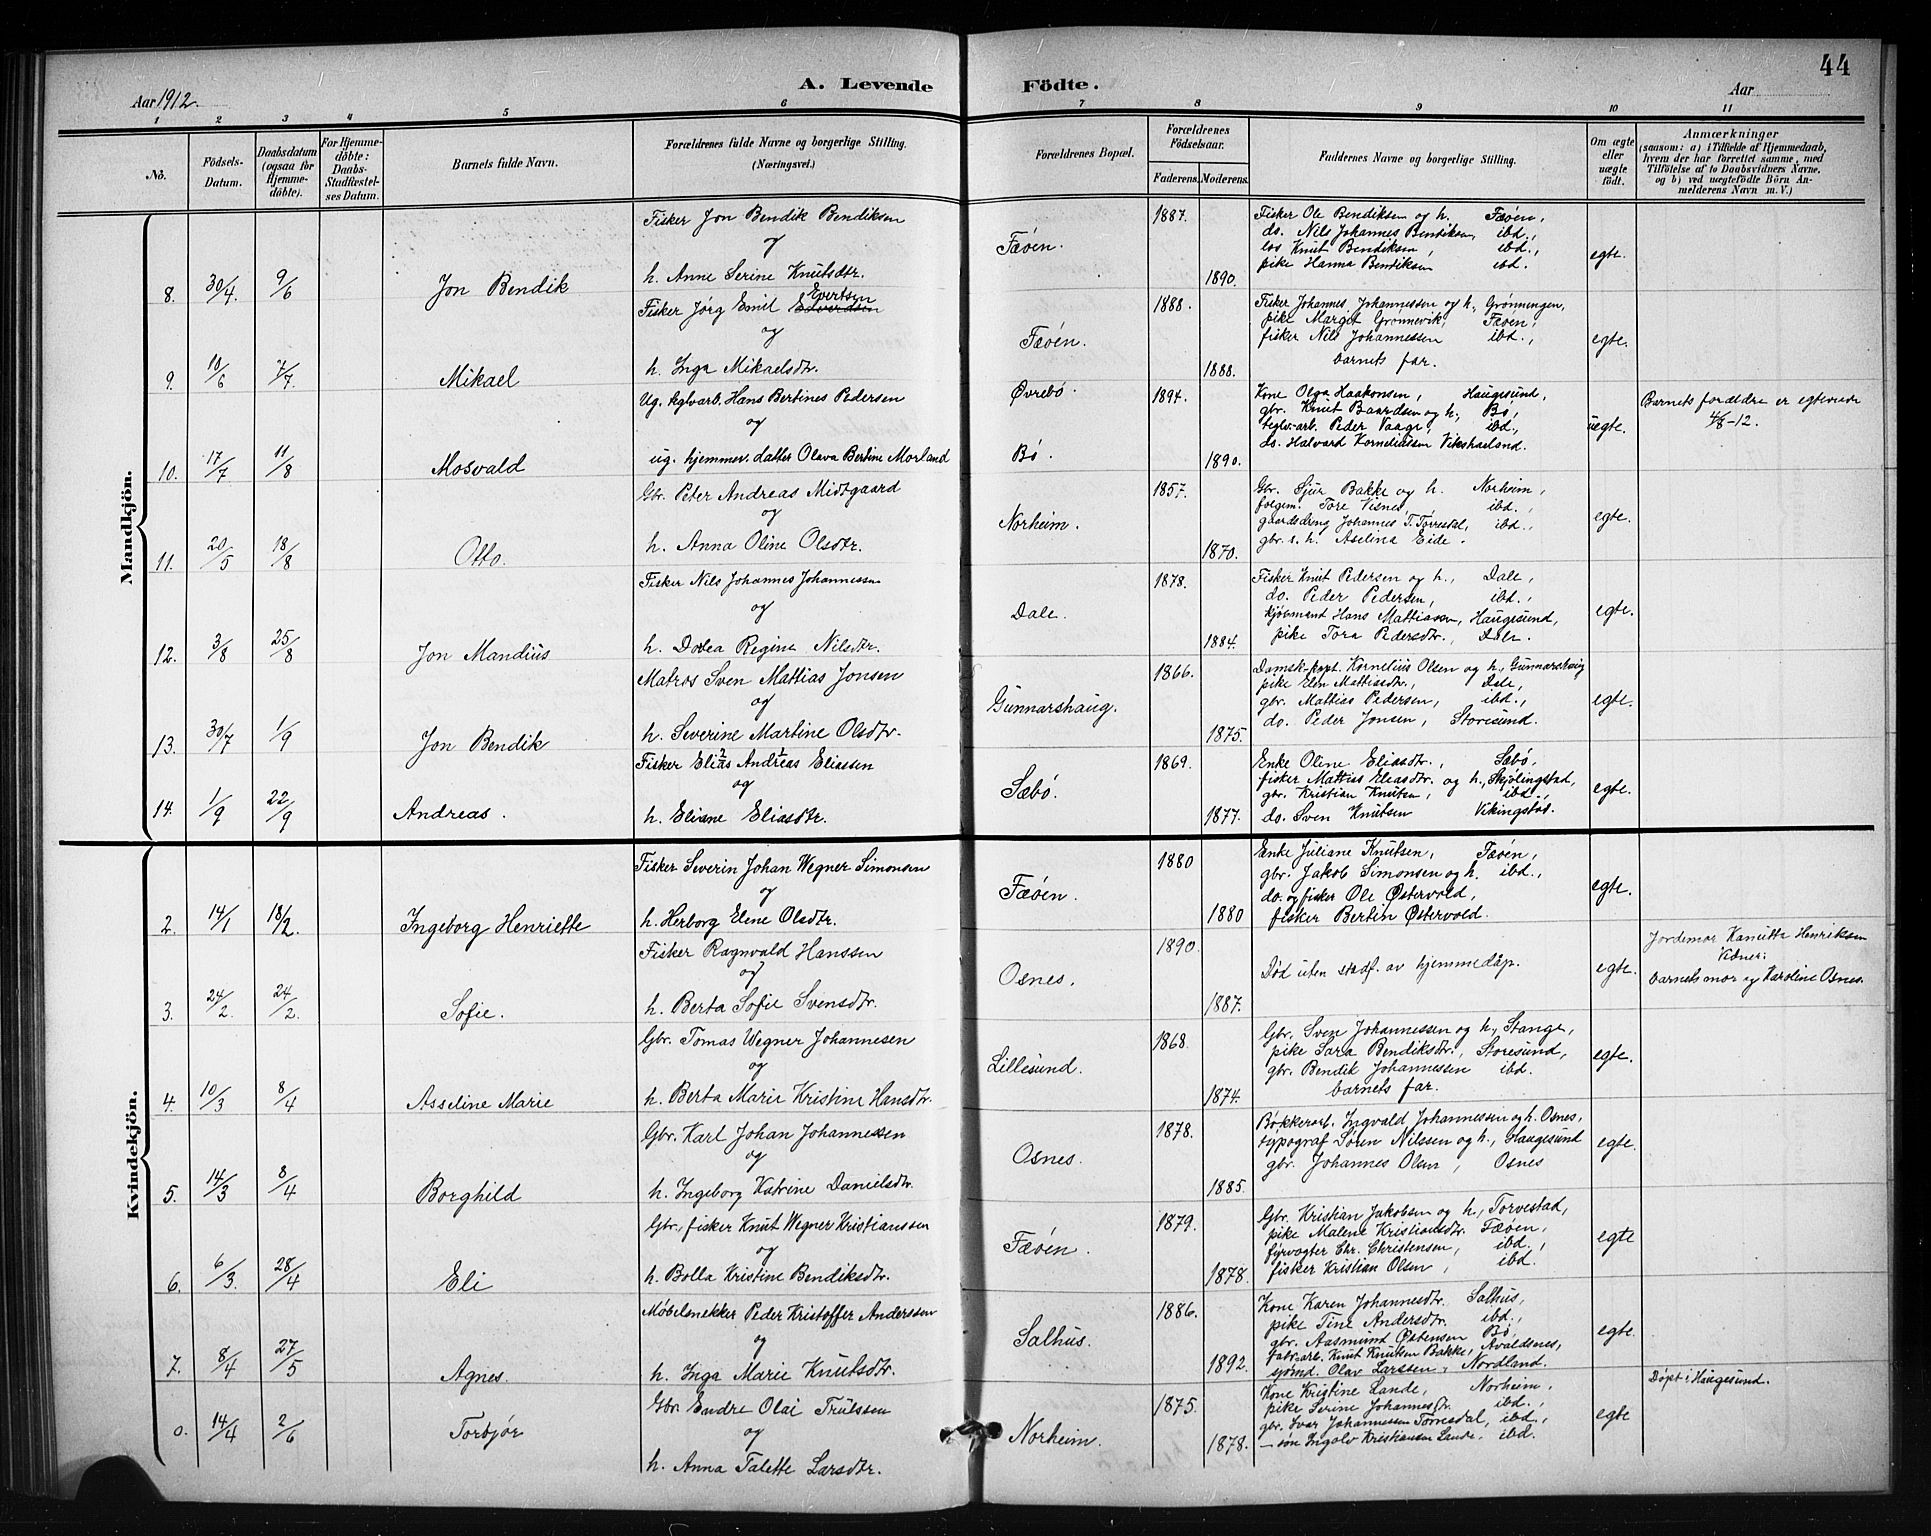 44
Aar 1912.
A. Levende Födte.
Aar
1 2 3 4 5 6 7 8 9 10 11
No.
Födsels-Datum.
Daabsdatum (ogsaa for Hjemmedöbte).
For Hjemmedöbte: Daabs-Stadfæstelses Datum.
Barnets fulde Navn.
Forældrenes fulde Navne og borgerlige Stilling. (Næringsvei.)
Forældrenes Bopæl.
Forældrenes Födselsaar.
Faderens. Moderens.
Faddernes Navne og borgerlige Stilling.
Om ægte eller uægte født.
Anmærkninger
(saasom: a) i Tilfælde af Hjemmedaab,
hvem der har forrettet samme, med
Tilföielse af to Daabsvidners Navne.
og b) ved uægtefödte Börn Anmelderens Navn m. V.)
Mandkjön.
8. 30/4. 9/6 Jon Bendik
Fisker Jon Bendik Bendiksen
og
h. Anne Serine Knutsdtr.
Fæøen. 1887. 1890.
Fisker Ole Bendiksen og h. Fæøen,
do. Nils Johannes Bendiksen, ibd.,
los Knut Bendiksen ibd.,
pike Hanna Bendiksen ibd.
egte.
9. 10/6 7/7. Mikael
Fisker Jörg Emil Evertsen
og
h. Inga Mikaelsdtr.
Fæøen. 1888. 1888.
Fisker Johannes Johannessen og h., Grønningen,
pike Margit Grønnevik, Fæøen,
fisker Nils Johannessen ibd.,
barnets far.
egte.
10. 17/7 11/8 Mosvald
Ug. tglvarb. Hans Bertines Pedersen
og
ug. hjemmev. datter Olava Bertine Morland
Øvrebö.
Bö. 1894. 1890.
Kone Olga Haakonsen, Haugesund,
gbr. Knut Baardsen og h., Bö,
teglv.-arb. Peder Vaage, ibd,
do. Halvard Korneliussen Vikshaaland.
uegte.
Barnets forældre er egteviede
4/8-12.
11. 20/5 18/8 Otto.
Gbr. Peter Andreas Midtgaard
og
h. Anna Oline Olsdtr.
Norheim. 1857. 1870.
Gbr. Sjur Bakke og h. Norheim,
folgem. Tore Visnes, ibd.,
gaardsdreng Johannes T. Torvestad, ibd.,
gbr.s. h. Aselina Eide.
egte.
12. 3/8 25/8 Jon Mandius
Fisker Nils Johannes Johannessen
og
h. Dorea Regine Nilsdtr.
Dale. 1878. 1884.
Fisker Knut Pedersen og h., Dale,
do. Peder Pedersen, ibd.,
kjöbmand Hans Mattiassen, Haugesund,
pike Tora Pedersdtr., Dale.
egte.
13. 30/7 1/9 Jon Bendik
Matros Sven Mattias Jonsen
og
h. Severine Martine Olsdtr.
Gunnarshaug. 1866. 1875.
Damsk.-kapt. Kornelius Olsen og h., Gunnarshaug
pike Elen Mattiasdtr., Dale,
gbr. Mattias Pedersen, ibd.,
do. Peder Jonsen, Storesund.
egte.
14. 1/9 22/9 Andreas.
Fisker Elias Andreas Eliassen
og
h. Eliane Eliasdtr.
Sæbö. 1869. 1877.
Enke Oline Eliasdtr., Sæbö,
fisker Mattias Eliasdtr. og h., Skjölingstad,
gbr. Kristian Knutsen, ibd.,
do. Sven Knutsen Vikingstad.
egte.
Kvindekjön.
2. 14/1 18/2. Ingeborg Henriette
Fisker Severin Johan Wegner Simonsen
og
h. Herborg Elene Olsdtr.
Fæøen. 1880 1880
Enke Juliane Knutsen, Fæøen,
gbr. Jakob Simonsen og h, ibd.,
do. og fisker Ole Østervold,
fisker Bertin Østervold.
egte.
3. 24/2. 24/2. Sofie.
Fisker Ragnvald Hanssen
og
h. Berta Sofie Svensdtr.
Osnes. 1890. 1887.
Död uten stadf. av hjemmedåp.
egte.
Jordemor Kanutta Henriksen
Visnes.
barnets mor og Karoline Osnes.
4. 10/3 8/4 Asseline Marie
Gbr. Tomas Wegner Johannesen
og
h. Berta Marie Kristine Hansdtr.
Lillesund. 1868. 1874.
Gbr. Sven Johannessen og h., Stange,
pike Sara Bendiksdtr., Storesund,
gbr. Bendik Johannessen ibd.
barnets far.
egte.
5. 14/3 8/4 Borghild
Gbr. Karl Johan Johannessen
og
h. Ingeborg Katrine Danielsdtr.
Osnes. 1878. 1885.
Bökkerarb. Ingvald Johannessen og h. Osnes,
typograf Sören Nilssen og h., Haugesund
gbr. Johannes Olsen, Osnes
egte.
6. 6/3. 28/4 Eli
Gbr., fisker Knut Wegner Kristianssen
og
h. Bolla Kristine Bendiksdtr.
Fæøen. 1879. 1878.
Gbr. Kristian Jakobsen og h., Torvestad,
pike Malene Kristiansdtr. Fæøen,
fyrvogter Chr. Christensen, ibd.,
fisker Kristian Olsen, ibd.
egte
7. 8/4 27/5 Agnes.
Møbelsnekker Peder Kristoffer Anderssen
og
h. Inga Marie Knutsdtr.
Salhus. 1886. 1892.
Kone Karen Johannesdtr. Salhus,
pike Tine Andersdtr. ibd.,
gbr. Aasmund Östensen Bö,
fabr.arb. Knut Knutsen Bakke, Avaldsnes,
sjömd. Olav Larssen, Nordland.
egte.
o. 14/4 2/6 Torbjör
Gbr. Endre Olai Trulssen
og
h. Anna Talette Larsdtr.
Norheim. 1875. 1878.
Kone Kristine Lande, Norheim,
pike Serine Johannesdtr. ibd.,
gbr. Ivar Johannessen Torvesdal, ibd.,
— sön Ingolv Kristiansen Lande, ibd.
egte
Döpt i Haugesund.